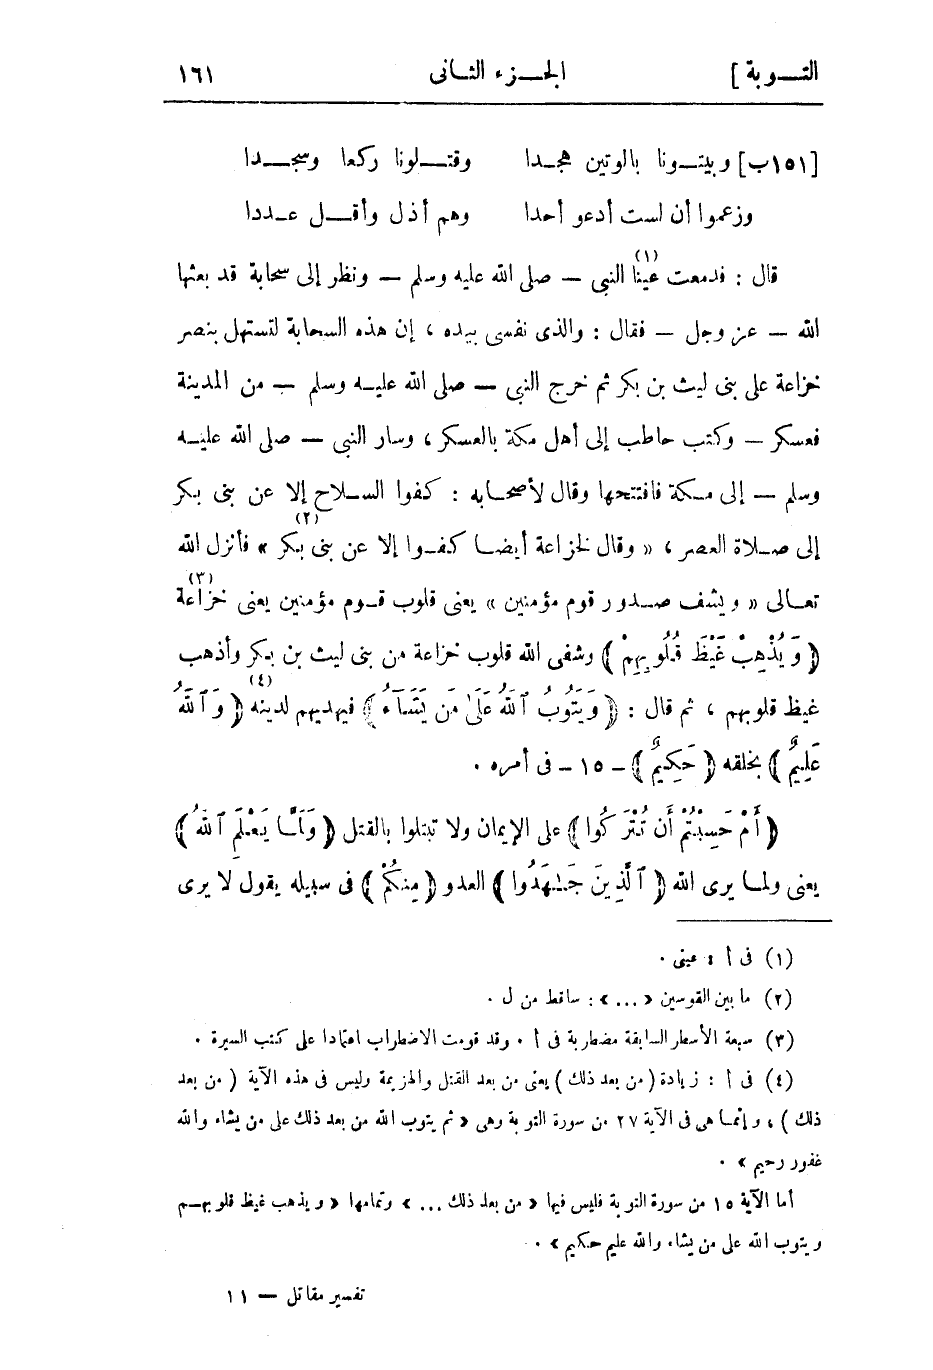 التـوبة ] الجـزء الثانى ١٦١
[١٥١ب] وبيتـونا بالوتين هجـدا وقتـلونا ركعا وسجـدا
وزعموا أن لست أدعو أحدا وهم أذل وأقـل عـددا
قال : فدمعت عينا (١) النبى — صلى الله عليه وسلم — ونظر إلى سحابة قد بعثها
الله — عز وجل — فقال : والذى نفسى بيده ، إن هذه السحابة لتستهل بنصر
خزاعة على بنى ليث بن بكر ثم خرج النبى — صلى الله عليـه وسلم — من المدينة
فعسكر — وكتب حاطب إلى أهل مكة بالعسكر ، وسار النبى — صلى الله عليـه
وسلم — إلى مـكة فافتتحها وقال لأصحـابه : كفوا السـلاح إلا عن بنى بكر
إلى صـلاة العصر ، « وقال لخزاعة أيضـا كفـوا إلا عن بنى بكر » (٢) فأنزل الله
تعـالى « ويشف صـدور قوم مؤمنين » يعنى قلوب قـوم مؤمنين يعنى خزاعة (٣)
﴿ وَيُذْهِبْ غَيْظَ قُلُوبِهِمْ ﴾ وشفى الله قلوب خزاعة من بنى ليث بن بكر وأذهب
غيظ قلوبهم ، ثم قال : ﴿ وَيَتُوبُ ٱللَّهُ عَلَىٰ مَن يَشَآءُ ﴾ فيهديهم لدينه (٤) ﴿ وَٱللَّهُ
عَلِيمٌ ﴾ بخلقه ﴿ حَكِيمٌ ﴾ — ١٥ — فى أمره .
﴿ أَمْ حَسِبْتُمْ أَن تُتْرَكُوا ﴾ على الإيمان ولا تبتلوا بالقتل ﴿ وَلَمَّا يَعْلَمِ ٱللَّهُ ﴾
يعنى ولمـا يرى الله ﴿ ٱلَّذِينَ جَـٰهَدُوا ﴾ العدو ﴿ مِنكُمْ ﴾ فى سبيله يقول لا يرى
(١) فى أ : عينى .
(٢) ما بين القوسين « ... » : ساقط من ل .
(٣) سبعة الأسطر السابقة مضطربة فى أ . وقد قومت الاضطراب اعتمادا على كتب السيرة .
(٤) فى أ : زيادة ( من بعد ذلك ) يعنى من بعد القتل والهزيمة وليس فى هذه الآية ( من بعد
ذلك ) ، وإنمـا هى فى الآية ٢٧ من سورة التوبة وهى « ثم يتوب الله من بعد ذلك على من يشاء والله
غفور رحيم » .
أما الآية ١٥ من سورة التوبة فليس فيها « من بعد ذلك ... » وتمامها « ويذهب غيظ قلوبهـم
ويتوب الله على من يشاء والله عليم حكيم » .
تفسير مقاتل — ١١